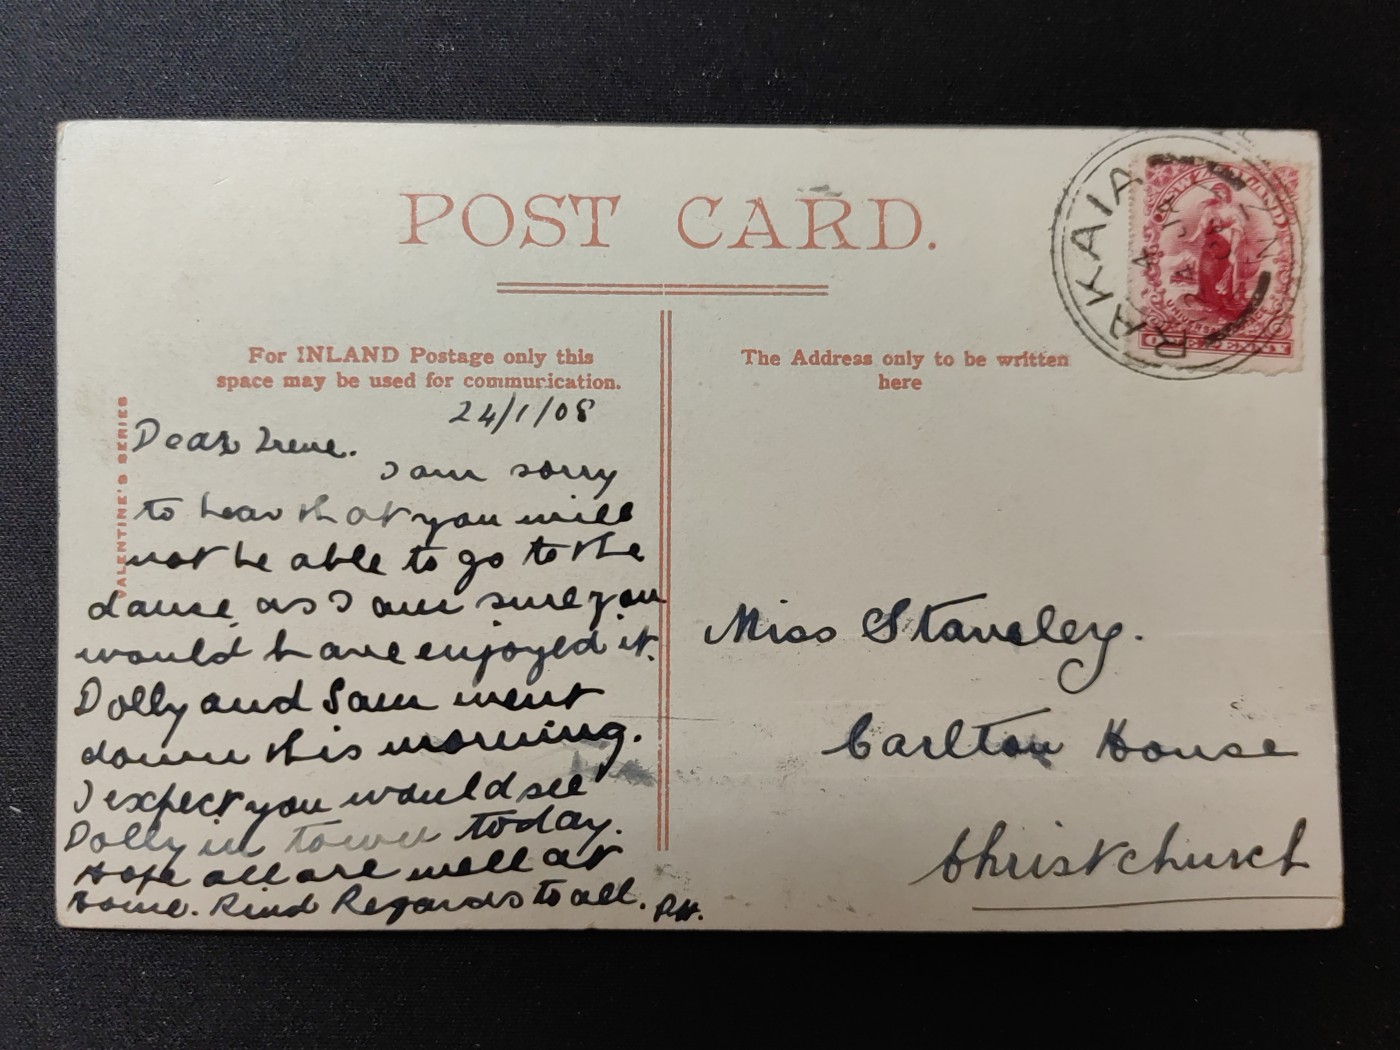 POST CARD.
For INLAND Postage only this
space may be used for communication.
The Address only to be written
here
VALENTINE'S SERIES
RAKAIA
NEW ZEALAND
UNIVERSAL
ONE PENNY
24/1/08
Dear Irene.
I am sorry
to hear that you will
not be able to go to the
dance, as I am sure you
would have enjoyed it.
Dolly and Sam went
down this morning.
I expect you would see
Dolly in town today.
Hope all are well at
home. Kind Regards to all. P.H.
Miss Staveley.
Carlton House
Christchurch